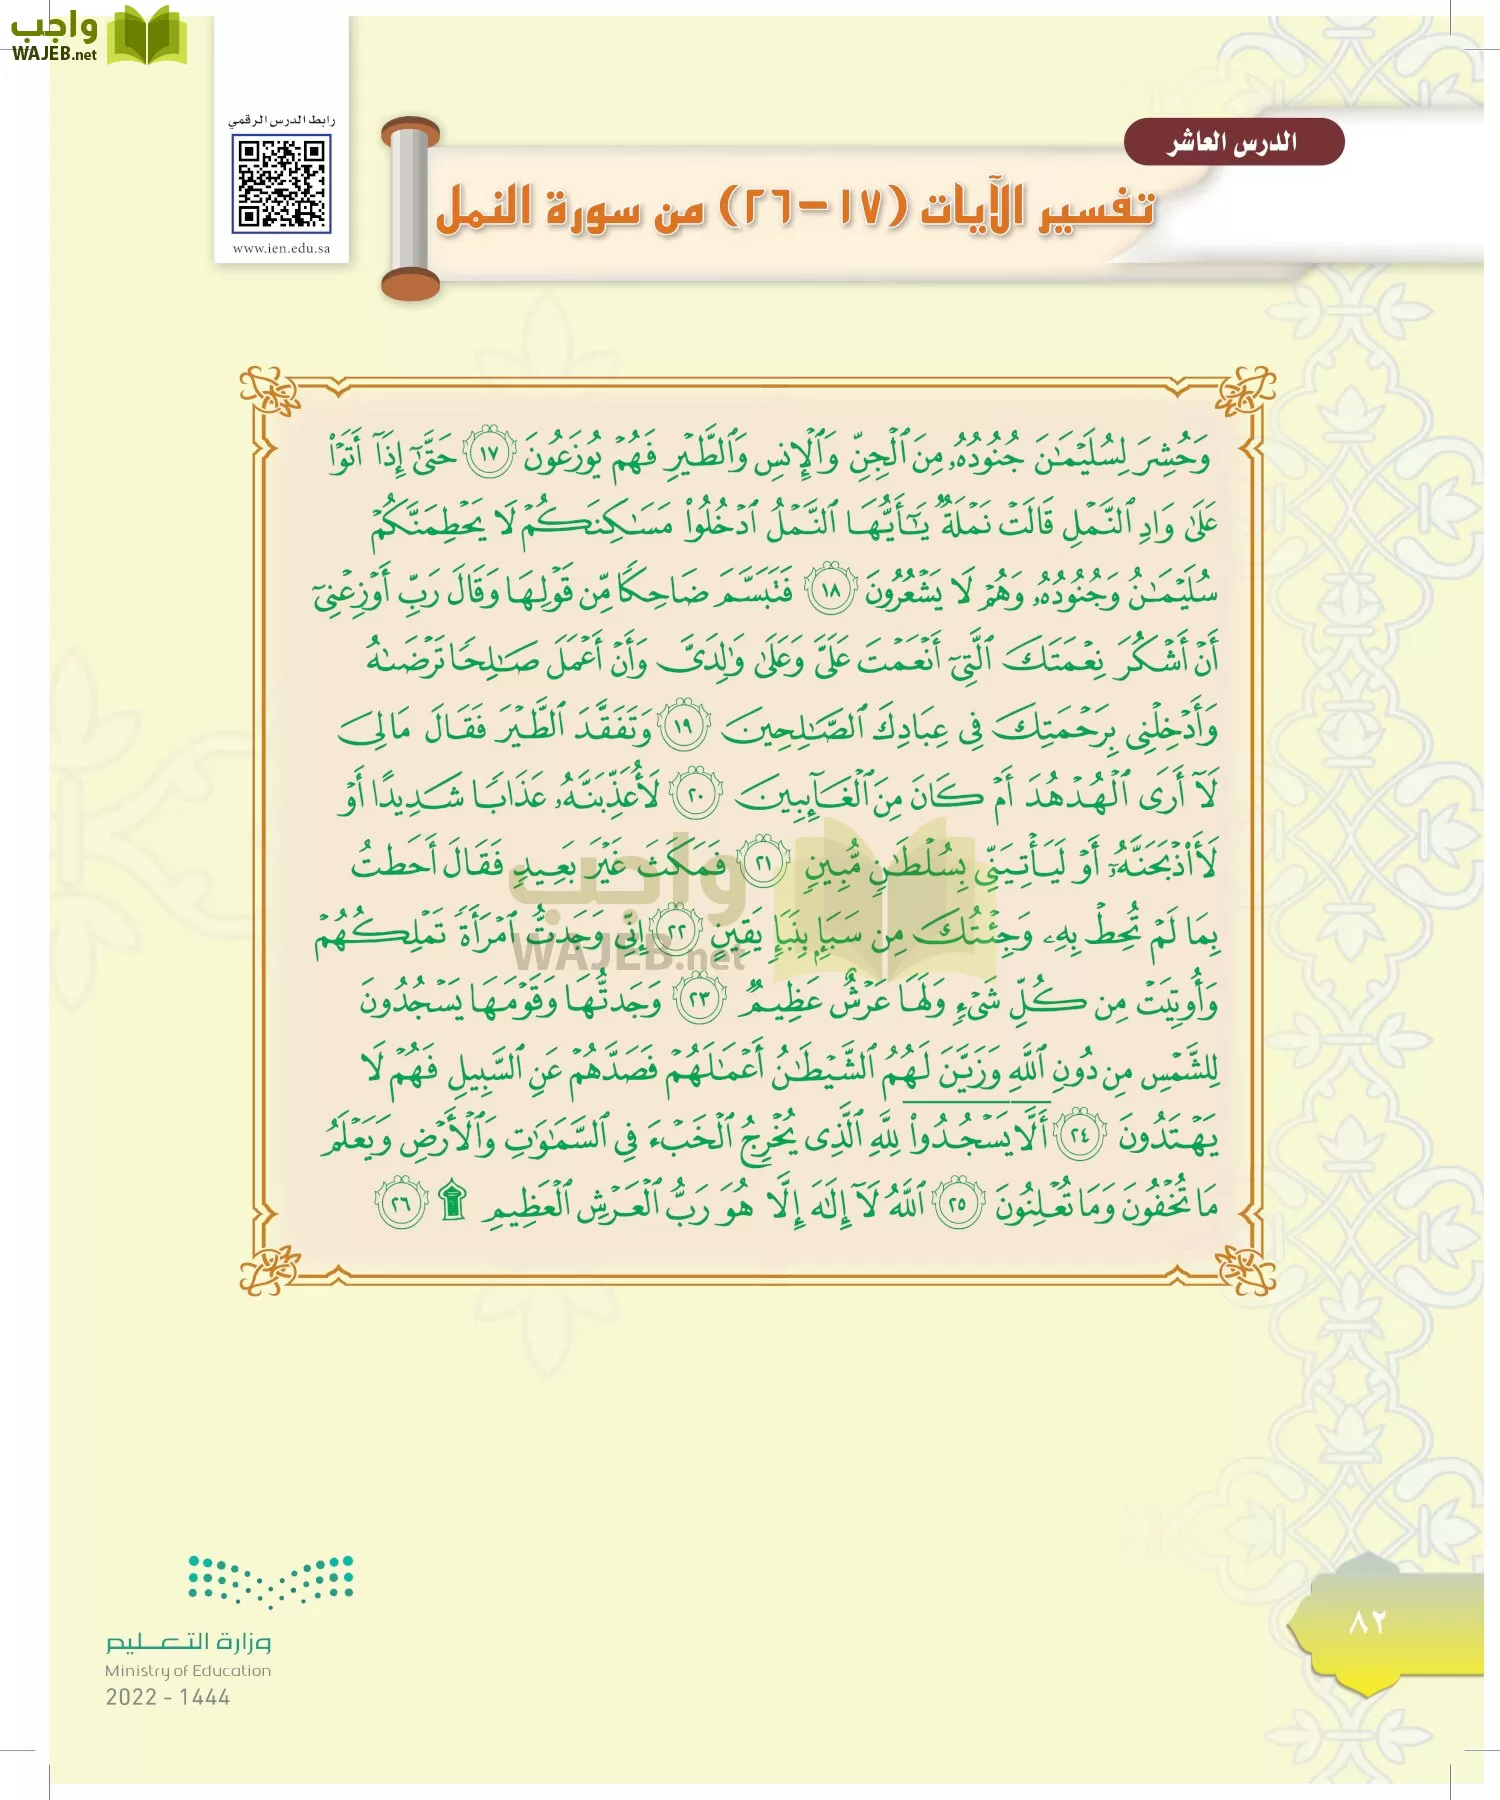 واجب
WAJEB.net
رابط الدرس الرقمي
www.ien.edu.sa
الدرس العاشر
تفسير الآيات (١٧-٢٦) من سورة النمل
وَحُشِرَ لِسُلَيْمَٰنَ جُنُودُهُۥ مِنَ ٱلْجِنِّ وَٱلْإِنسِ وَٱلطَّيْرِ فَهُمْ يُوزَعُونَ ١٧ حَتَّىٰٓ إِذَآ أَتَوْا۟
عَلَىٰ وَادِ ٱلنَّمْلِ قَالَتْ نَمْلَةٌ يَٰٓأَيُّهَا ٱلنَّمْلُ ٱدْخُلُوا۟ مَسَٰكِنَكُمْ لَا يَحْطِمَنَّكُمْ
سُلَيْمَٰنُ وَجُنُودُهُۥ وَهُمْ لَا يَشْعُرُونَ ١٨ فَتَبَسَّمَ ضَاحِكًا مِّن قَوْلِهَا وَقَالَ رَبِّ أَوْزِعْنِىٓ
أَنْ أَشْكُرَ نِعْمَتَكَ ٱلَّتِىٓ أَنْعَمْتَ عَلَىَّ وَعَلَىٰ وَٰلِدَىَّ وَأَنْ أَعْمَلَ صَٰلِحًا تَرْضَىٰهُ
وَأَدْخِلْنِى بِرَحْمَتِكَ فِى عِبَادِكَ ٱلصَّٰلِحِينَ ١٩ وَتَفَقَّدَ ٱلطَّيْرَ فَقَالَ مَا لِىَ
لَآ أَرَى ٱلْهُدْهُدَ أَمْ كَانَ مِنَ ٱلْغَآئِبِينَ ٢٠ لَأُعَذِّبَنَّهُۥ عَذَابًا شَدِيدًا أَوْ
لَأَا۟ذْبَحَنَّهُۥٓ أَوْ لَيَأْتِيَنِّى بِسُلْطَٰنٍ مُّبِينٍ ٢١ فَمَكَثَ غَيْرَ بَعِيدٍ فَقَالَ أَحَطتُ
بِمَا لَمْ تُحِطْ بِهِۦ وَجِئْتُكَ مِن سَبَإٍۭ بِنَبَإٍ يَقِينٍ ٢٢ إِنِّى وَجَدتُّ ٱمْرَأَةً تَمْلِكُهُمْ
وَأُوتِيَتْ مِن كُلِّ شَىْءٍ وَلَهَا عَرْشٌ عَظِيمٌ ٢٣ وَجَدتُّهَا وَقَوْمَهَا يَسْجُدُونَ
لِلشَّمْسِ مِن دُونِ ٱللَّهِ وَزَيَّنَ لَهُمُ ٱلشَّيْطَٰنُ أَعْمَٰلَهُمْ فَصَدَّهُمْ عَنِ ٱلسَّبِيلِ فَهُمْ لَا
يَهْتَدُونَ ٢٤ أَلَّا يَسْجُدُوا۟ لِلَّهِ ٱلَّذِى يُخْرِجُ ٱلْخَبْءَ فِى ٱلسَّمَٰوَٰتِ وَٱلْأَرْضِ وَيَعْلَمُ
مَا تُخْفُونَ وَمَا تُعْلِنُونَ ٢٥ ٱللَّهُ لَآ إِلَٰهَ إِلَّا هُوَ رَبُّ ٱلْعَرْشِ ٱلْعَظِيمِ ۩ ٢٦
واجب
WAJEB.net
وزارة التعليم
Ministry of Education
2022 - 1444
٨٢